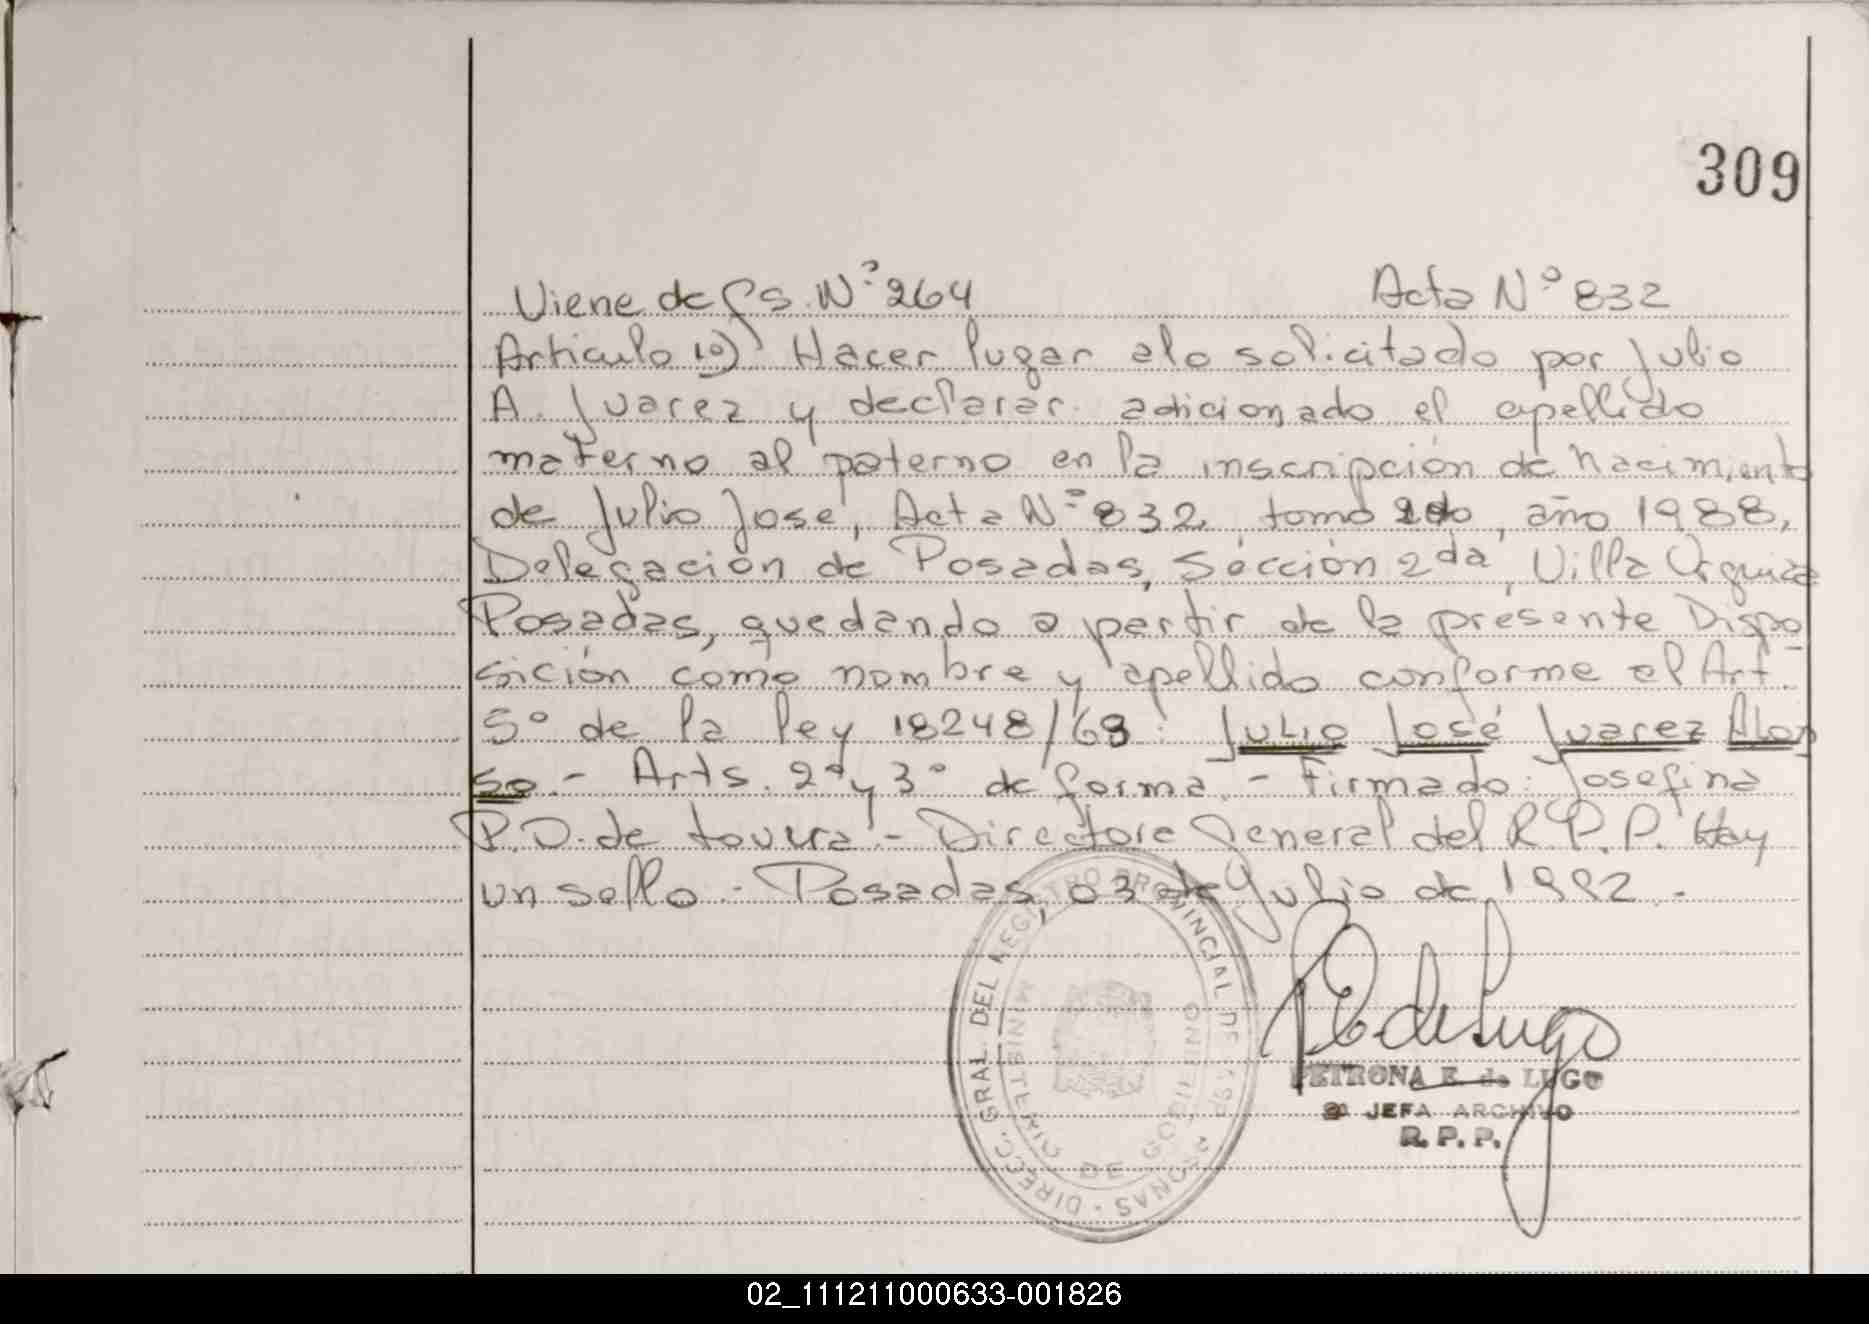 309
Viene de fs. Nº 264 Acta Nº 832
Articulo 1º) Hacer lugar a lo solicitado por Julio
A. Juarez y declarar adicionado el apellido
materno al paterno en la inscripción de nacimiento
de Julio José, Acta Nº 832, tomo 2do, año 1988,
Delegación de Posadas, Sección 2da, Villa Urquiza
Posadas, quedando a partir de la presente Dispo
sición como nombre y apellido conforme el Art.
5º de la ley 18248/69: Julio José Juarez Alon
so.- Arts. 2º y 3º de forma.- Firmado: Josefina
P.D. de Lovera.- Directora General del R.P.P. Hay
un sello.- Posadas, 03 de Julio de 1992.-
DIREC. GRAL. DEL REGISTRO PROVINCIAL DE LAS PERSONAS
MINISTERIO DE GOBIERNO
PE de Lugo
PETRONA E. de LUGO
2ª JEFA ARCHIVO
R. P. P.
02_111211000633-001826